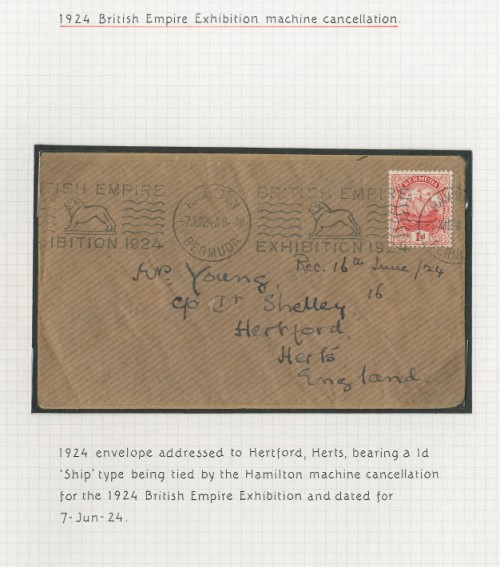 1924 British Empire Exhibition machine cancellation.
TISH EMPIRE
IBITION 1924
BERMUDA
BRITISH EMPIRE
EXHIBITION 1924
BERMUDA
1d
Rec. 16th June/24
16
Mr. Young,
c/o Dr Shelley
Hertford,
Herts
England.
1924 envelope addressed to Hertford, Herts, bearing a 1d
'Ship' type being tied by the Hamilton machine cancellation
for the 1924 British Empire Exhibition and dated for
7-Jun-24.